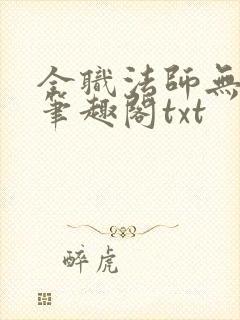 全職法師無
筆趣閣txt
醉虎